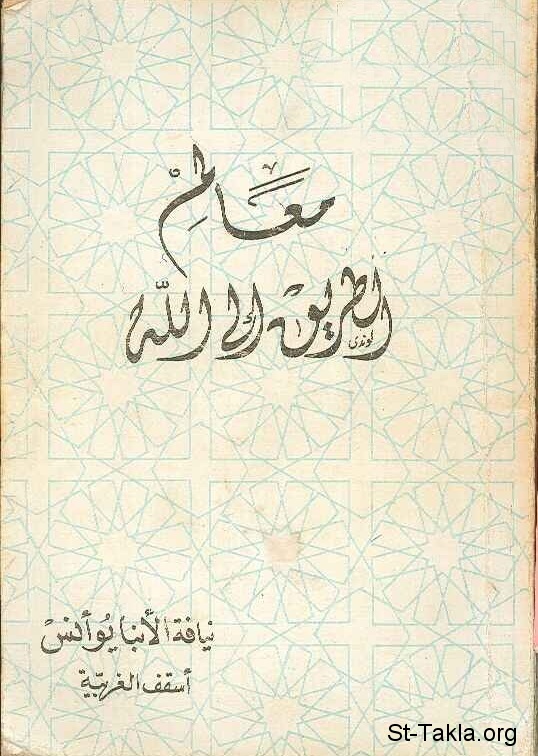 معالم
الطريق إلى الله
نيافة الأنبا يوأنس
أسقف الغربية
St-Takla.org